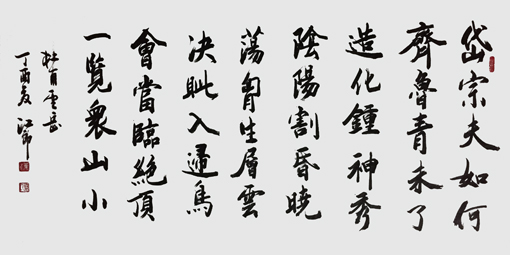 岱宗夫如何
齊魯青未了
造化鍾神秀
陰陽割昏曉
蕩胷生層雲
決眦入歸鳥
會當臨絶頂
一覽衆山小
杜甫望岳
丁酉夏 江